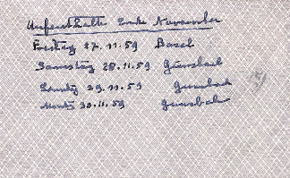 Aufenthalte Ende November
Freitag 27.11.59 Basel
Samstag 28.11.59 Günsbach
Sonntag 29.11.59 Gunsbach
Montag 30.11.59 Gunsbach